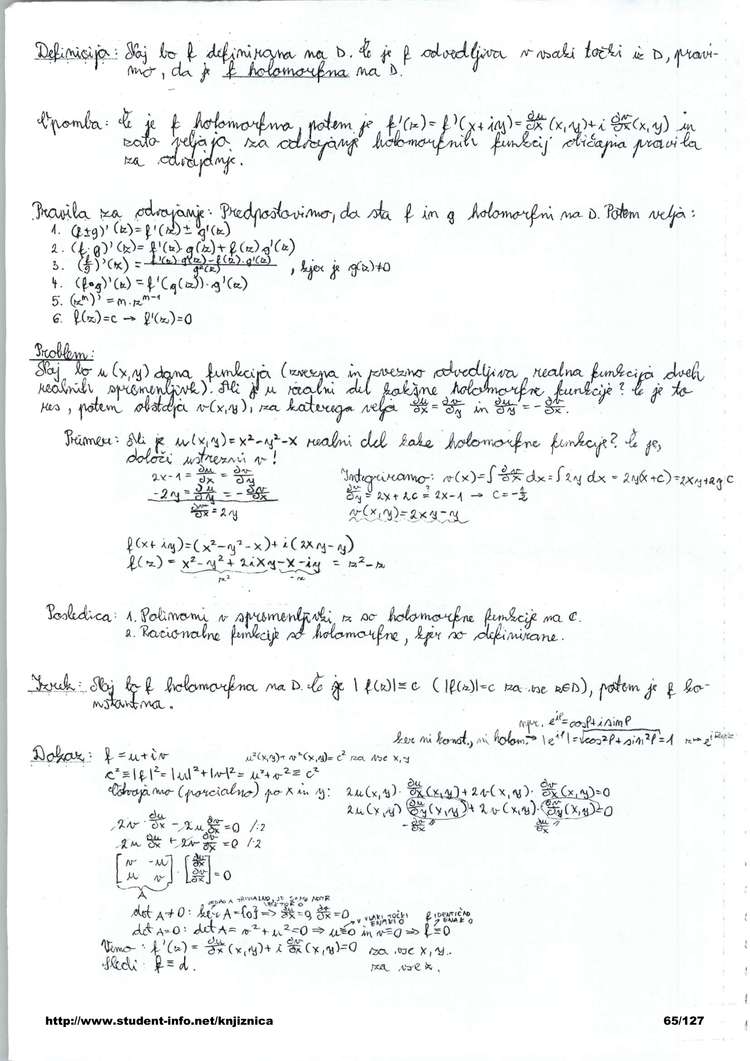 Definicija: Naj bo f definirana na D. Če je f odvedljiva v vsaki točki iz D, pravi-
mo, da je f holomorfna na D.
Opomba: Če je f holomorfna, potem je f'(z) = f'(x+iy) = ∂u/∂x (x,y) + i ∂v/∂x (x,y) in
zato veljajo za odvajanje holomorfnih funkcij običajna pravila
za odvajanje.
Pravila za odvajanje: Predpostavimo, da sta f in g holomorfni na D. Potem velja:
1. (f±g)'(z) = f'(z) ± g'(z)
2. (f·g)'(z) = f'(z)·g(z) + f(z)·g'(z)
3. (f/g)'(z) = (f'(z)·g(z) - f(z)·g'(z))/g²(z), kjer je g(z)≠0
4. (f∘g)'(z) = f'(g(z))·g'(z)
5. (zⁿ)' = n·zⁿ⁻¹
6. f(z)=c → f'(z)=0
Problem:
Naj bo u(x,y) dana funkcija (zvezna in zvezno odvedljiva realna funkcija dveh
realnih spremenljivk). Ali je u realni del kakšne holomorfne funkcije? Če je to
res, potem obstaja v(x,y), za katerega velja ∂u/∂x = ∂v/∂y in ∂u/∂y = -∂v/∂x.
Primer: Ali je u(x,y) = x²-y²-x realni del kake holomorfne funkcije? Če je,
določi ustrezni v!
2x-1 = ∂u/∂x = ∂v/∂y Integriramo: v(x) = ∫ ∂v/∂x dx = ∫2y dx = 2y(x+c) = 2xy+2yc
-2y = ∂u/∂y = -∂v/∂x ∂v/∂y = 2x+2c ≟ 2x-1 → c = -1/2
∂v/∂x = 2y v(x,y) = 2xy-y
f(x+iy) = (x²-y²-x) + i(2xy-y)
f(z) = x²-y²+2ixy-x-iy = z²-z
z² -z
Posledica: 1. Polinomi v spremenljivki z so holomorfne funkcije na ℂ.
2. Racionalne funkcije so holomorfne, kjer so definirane.
Izrek: Naj bo f holomorfna na D. Če je |f(z)| ≡ c (|f(z)|=c za vse z∈D), potem je f ko-
nstantna.
npr. e^{iφ} = cosφ + i sinφ
ker ni konst., ni holom. → |e^{iφ}| = √cos²φ + sin²φ = 1
Dokaz: f = u+iv u²(x,y)+v²(x,y) = c² za vse x,y
c² ≡ |f|² = |u|²+|v|² = u²+v² ≡ c²
Odvajamo (parcialno) po x in y: 2u(x,y)·∂u/∂x (x,y) + 2v(x,y)·∂v/∂x (x,y) = 0
2u(x,y)·∂u/∂y (x,y) + 2v(x,y)·∂v/∂y (x,y) = 0
-∂v/∂x ∂u/∂x
2v·∂u/∂x - 2u ∂v/∂x = 0 /:2
2u ∂u/∂x + 2v ∂v/∂x = 0 /:2
[v -u; u v]·[∂u/∂x; ∂v/∂x] = 0
A
det A≠0: ker A={0} ⇒ ∂u/∂x = 0, ∂v/∂x = 0
V VSAKI TOČKI ENAKI 0 f IDENTIČNO ENAK 0
det A=0: det A = v²+u² = 0 ⇒ u≡0 in v≡0 ⇒ f≡0
Vemo: f'(z) = ∂u/∂x (x,y) + i ∂v/∂x (x,y) = 0 za vse x,y.
Sledi f ≡ d. za vse z.
http://www.student-info.net/knjiznica 65/127